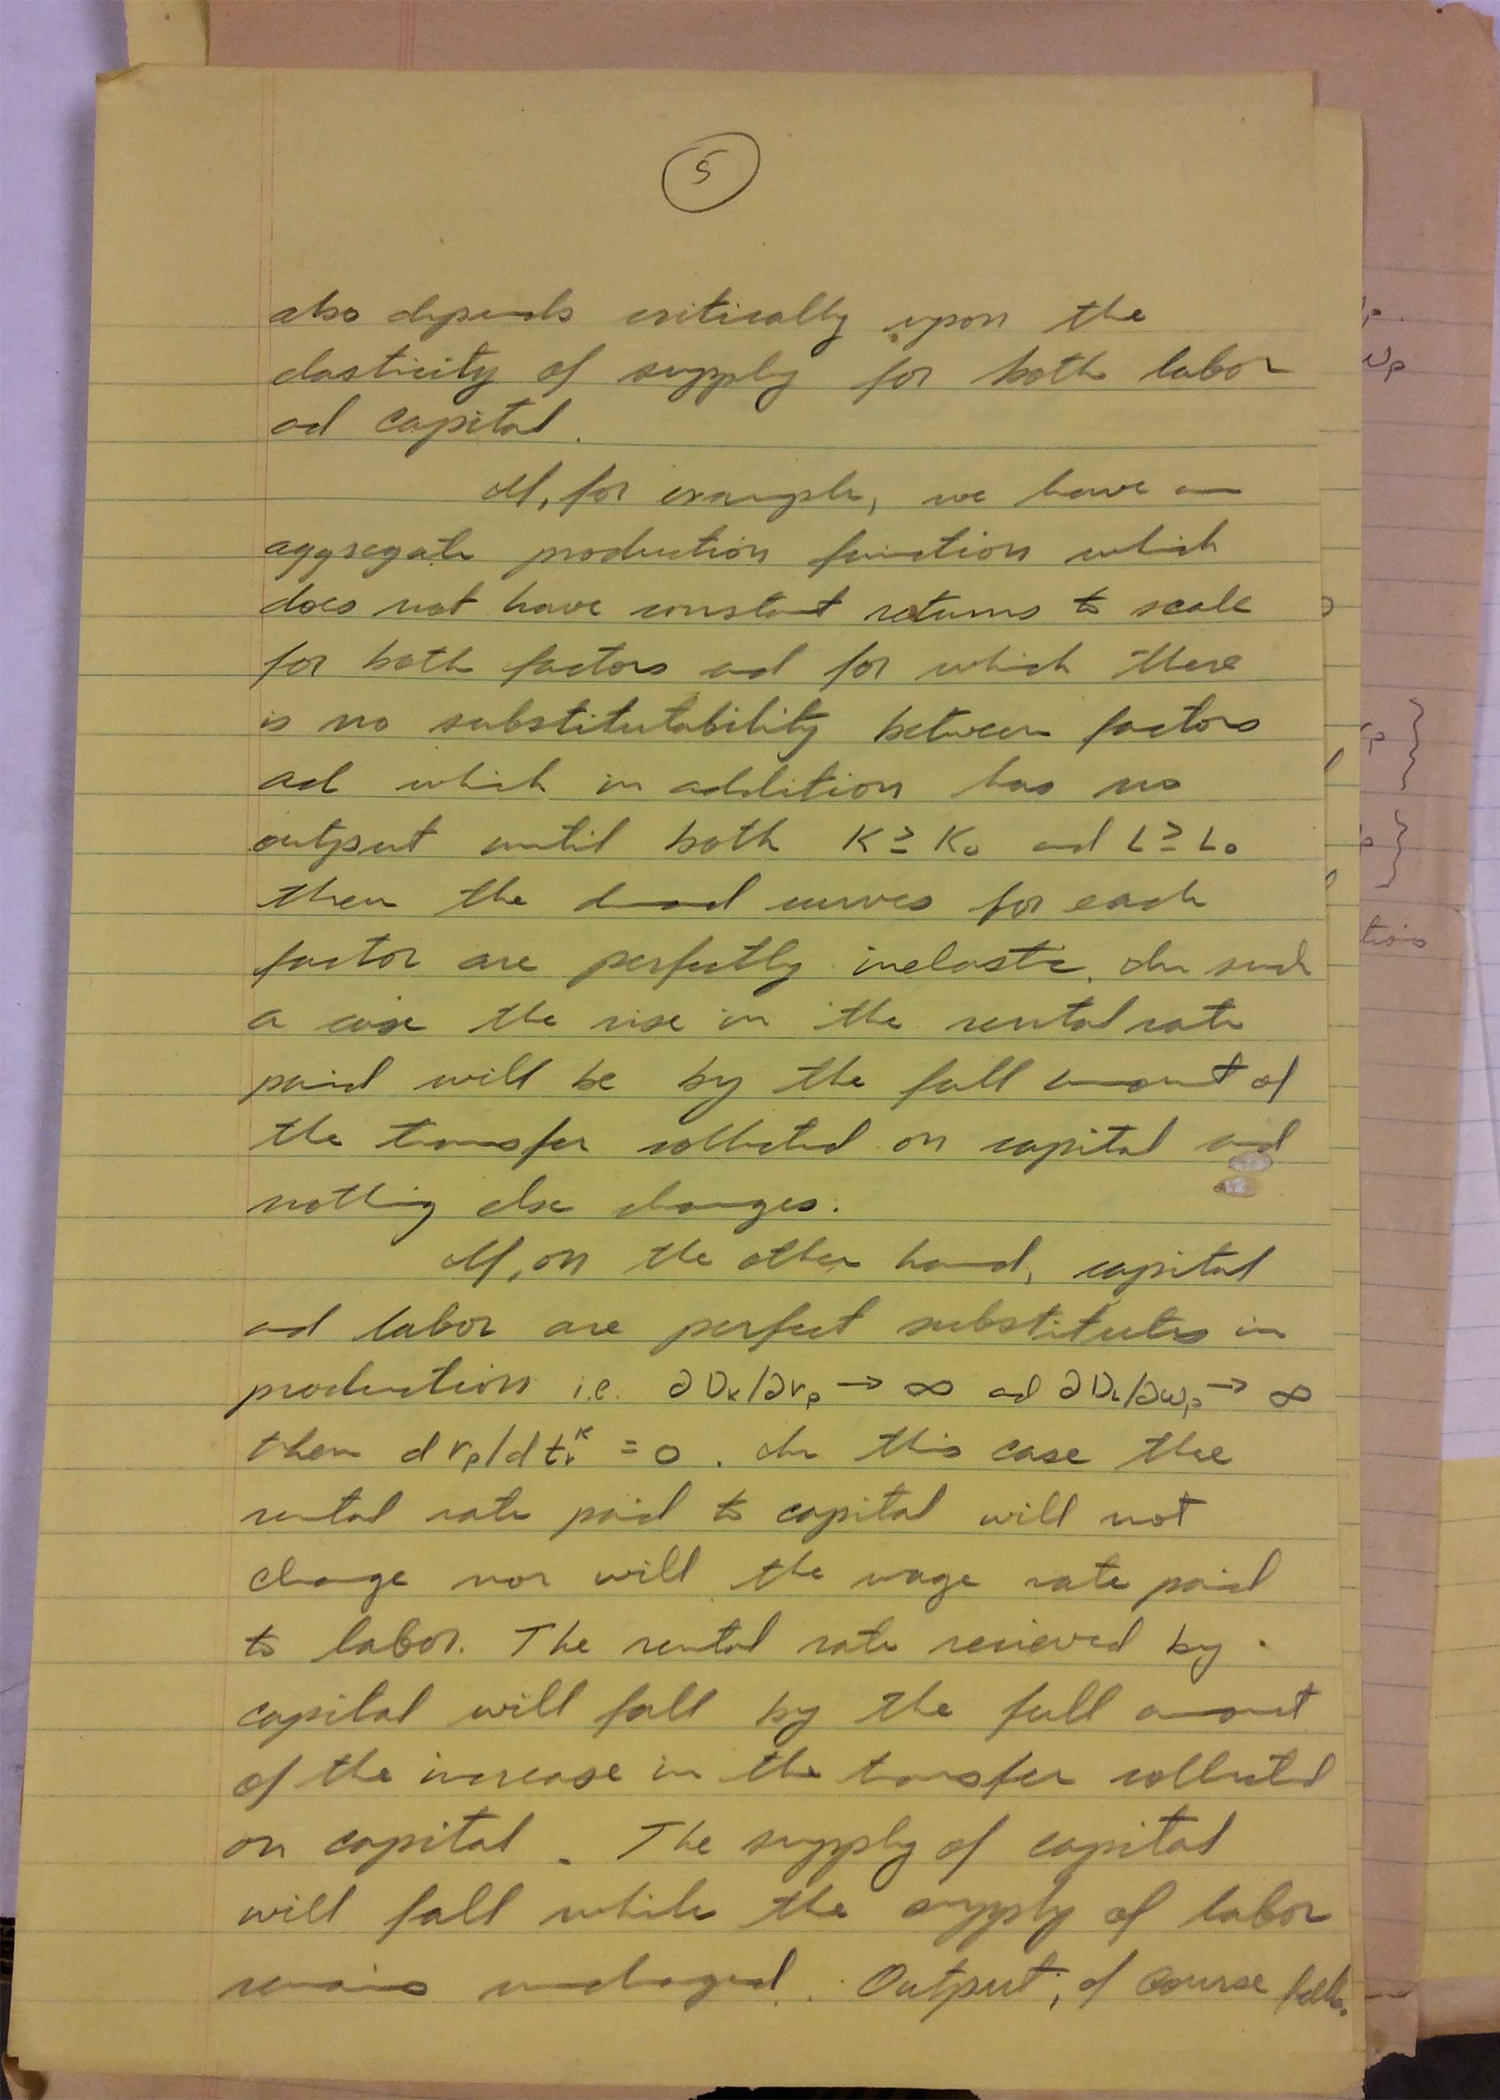 5
also depends critically upon the
elasticity of supply for both labor
and capital.
If, for example, we have an
aggregate production function which
does not have constant returns to scale
for both factors and for which there
is no substitutability between factors
and which in addition has no
output until both K ≥ K₀ and L ≥ L₀
then the demand curves for each
factor are perfectly inelastic. In such
a case the rise in the rental rate
paid will be by the full amount of
the transfer collected on capital and
nothing else changes.
If, on the other hand, capital
and labor are perfect substitutes in
production i.e. ∂Dₖ/∂rₚ → ∞ and ∂D_L/∂wₚ → ∞
then drₚ/dtᵣᴷ = 0. In this case the
rental rate paid to capital will not
change nor will the wage rate paid
to labor. The rental rate recieved by
capital will fall by the full amount
of the increase in the transfer collected
on capital. The supply of capital
will fall while the supply of labor
remains unchanged. Output, of course falls.
wₚ